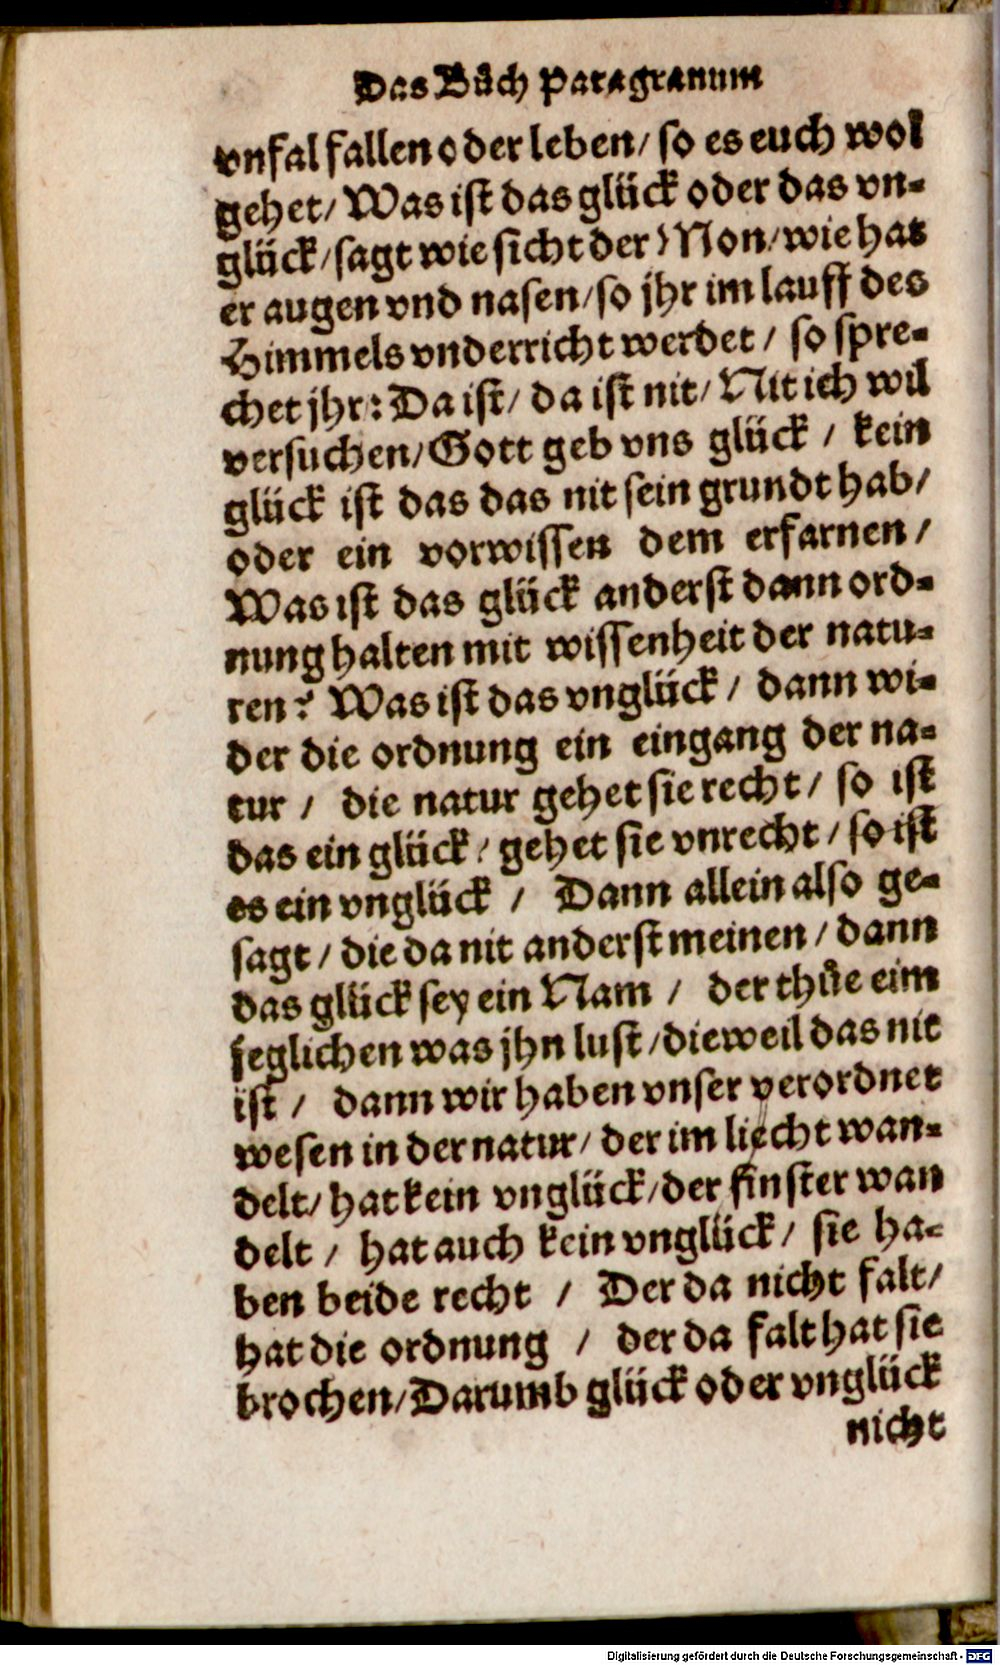 Das Bůch Paragranum
vnfal fallen oder leben/ so es euch wol
gehet/ Was ist das glück oder das vn-
glück/ sagt wie sicht der Mon/ wie hat
er augen vnd nasen/ so jhr im lauff des
Himmels vnderricht werdet / so spre-
chet jhr: Da ist/ da ist nit/ Nit ich wil
versuchen/ Gott geb vns glück / kein
glück ist das das nit sein grundt hab/
oder ein vorwissen dem erfarnen /
Was ist das glück anderst dann ord-
nung halten mit wissenheit der natu-
ren? Was ist das vnglück / dann wi-
der die ordnung ein eingang der na-
tur / die natur gehet sie recht / so ist
das ein glück / gehet sie vnrecht / so ist
es ein vnglück / Dann allein also ge-
sagt / die da nit anderst meinen / dann
das glück sey ein Nam / der thůe eim
jeglichen was jhn lust / dieweil das nit
ist / dann wir haben vnser verordnet
wesen in der natur/ der im liecht wan-
delt/ hat kein vnglück/ der finster wan
delt / hat auch kein vnglück / sie ha-
ben beide recht / Der da nicht falt/
hat die ordnung / der da falt hat sie
brochen/ Darumb glück oder vnglück
nicht
Digitalisierung gefördert durch die Deutsche Forschungsgemeinschaft - DFG